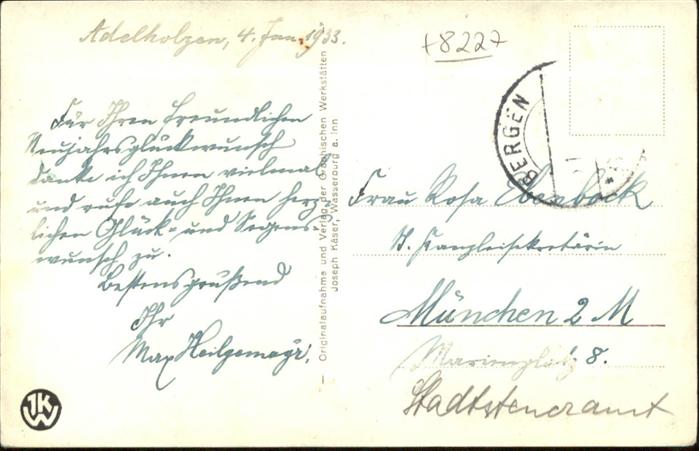 Adelholzen, 4. Jan. 1933.
+8227
Für Ihren freundlichen
Neujahrsglückwunsch
danke ich Ihnen vielmals
und rufe auch Ihnen herz-
lichen Glück- und Segens-
wunsch zu.
Bestens grüßend
Ihr
Max Heilgemayr.
Originalaufnahme und Verlag der Graphischen Werkstätten
Joseph Käser, Wasserburg a. Inn
BERGEN
Frau Rosa Ebenböck
St. Kanzleisekretärin
München 2 M
Marienplatz 8.
Stadtsteueramt
JKW